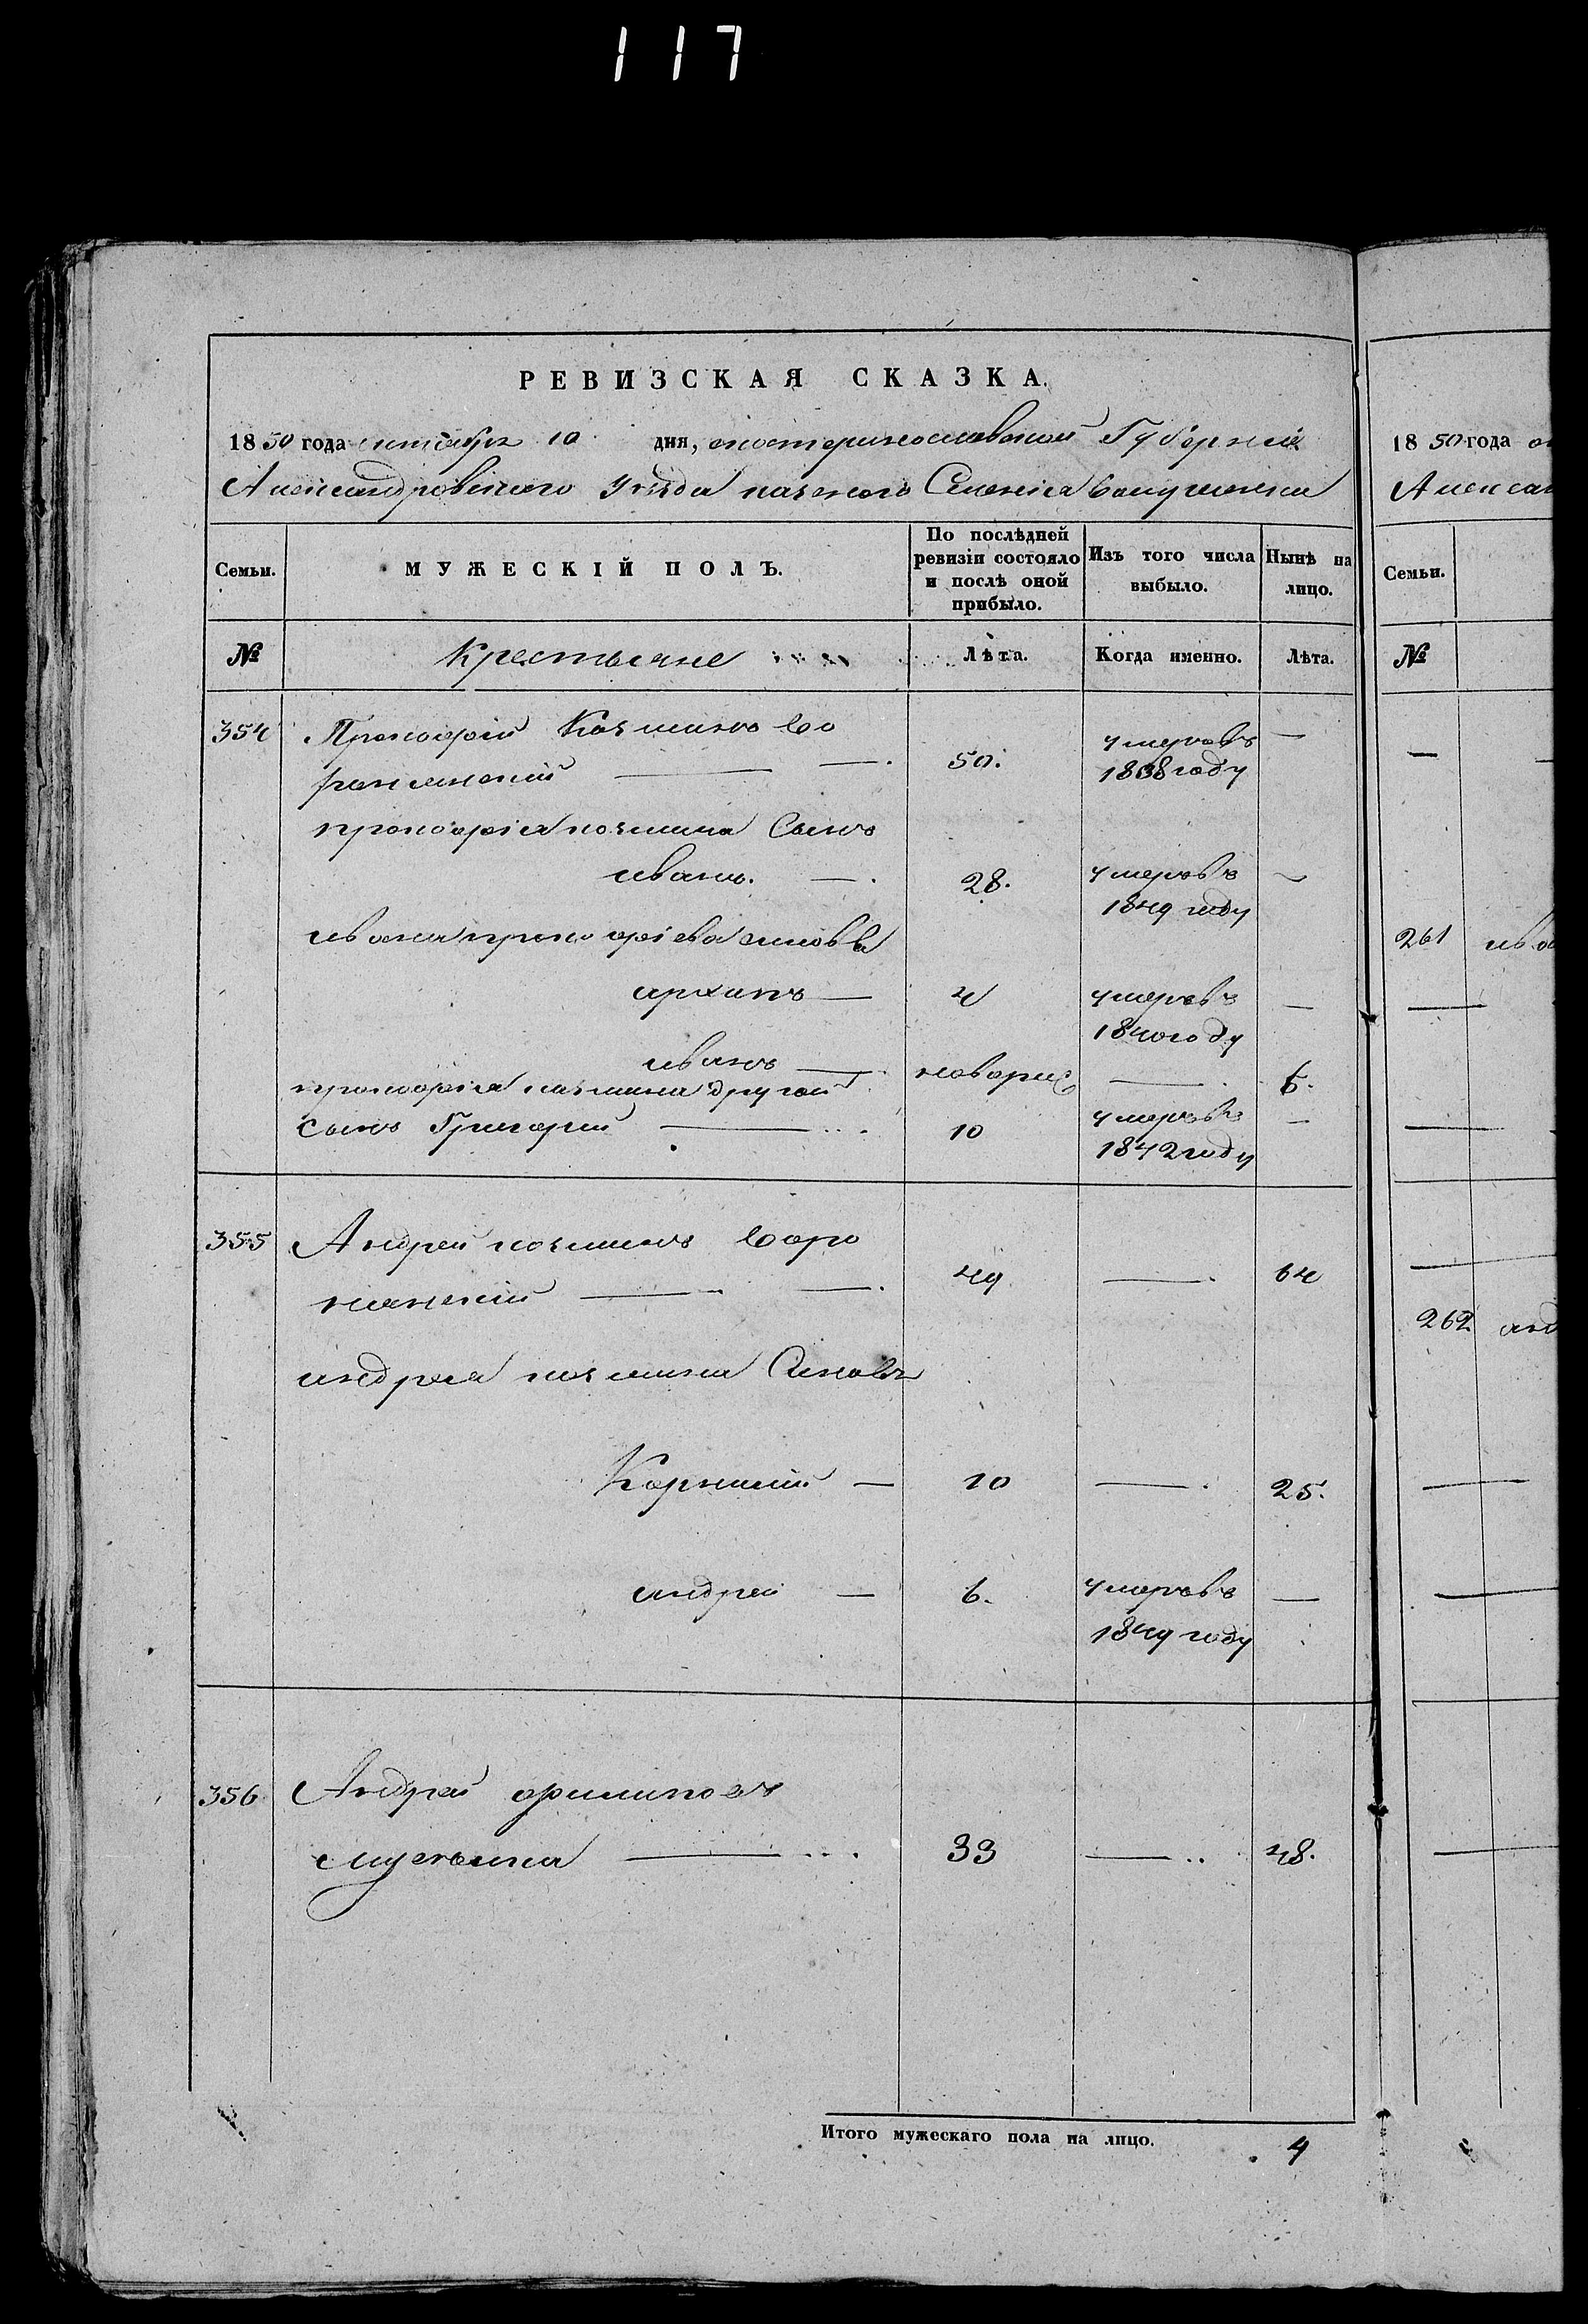 117
РЕВИЗСКАЯ СКАЗКА.
1850 года октября 10 дня, екатеринославской Губерніи
Александровскаго уезда казеного Селенія
Семьи.
МУЖЕСКІЙ ПОЛЪ.
По послѣдней ревизіи состояло и послѣ оной прибыло.
Изъ того числа выбыло.
Нынѣ на лицо.
№
Крестьяне
Лѣта.
Когда именно.
Лѣта.
354 Прокофій Козминъ Во
50. умеръ въ —
1838 году
прокофія козмина Сынъ
иванъ. — 28. умеръ въ
1849 году
ивана прокофіева синовья
архипъ — 4 умеръ въ —
1840 году
иванъ — новорж — 6.
прокофія козмина другой
сынъ Григорій — 10 умеръ въ —
1842 году
355 Андрей козминъ Воро
49 — 64
андрея козмина Синовья
Корнилій — 10 — 25.
андрей — 6. умеръ въ —
1849 году
356 Андрей филиповъ
33 — 48.
Итого мужескаго пола на лицо. 4
1850 года
Алексан
Семьи.
№
261 ива
262 анд